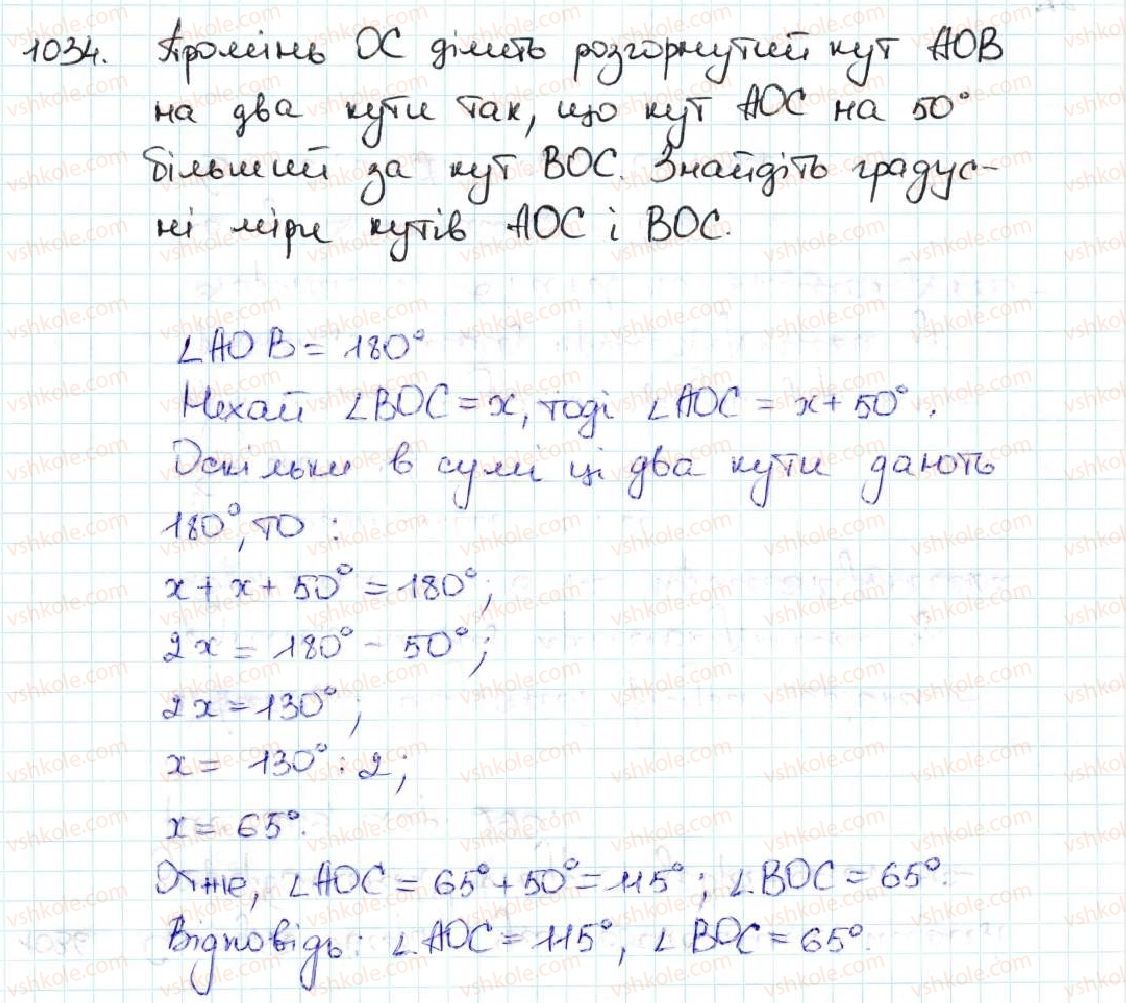 1034. Промінь OC ділить розгорнутий кут AOB
на два кути так, що кут AOC на 50°
більший за кут BOC. Знайдіть градус-
ні міри кутів AOC і BOC.
∠AOB = 180°
Нехай ∠BOC = x, тоді ∠AOC = x + 50°.
Оскільки в сумі ці два кути дають
180°, то :
x + x + 50° = 180°;
2x = 180° - 50°;
2x = 130°;
x = 130° : 2;
x = 65°.
Отже, ∠AOC = 65° + 50° = 115°; ∠BOC = 65°.
Відповідь: ∠AOC = 115°, ∠BOC = 65°.